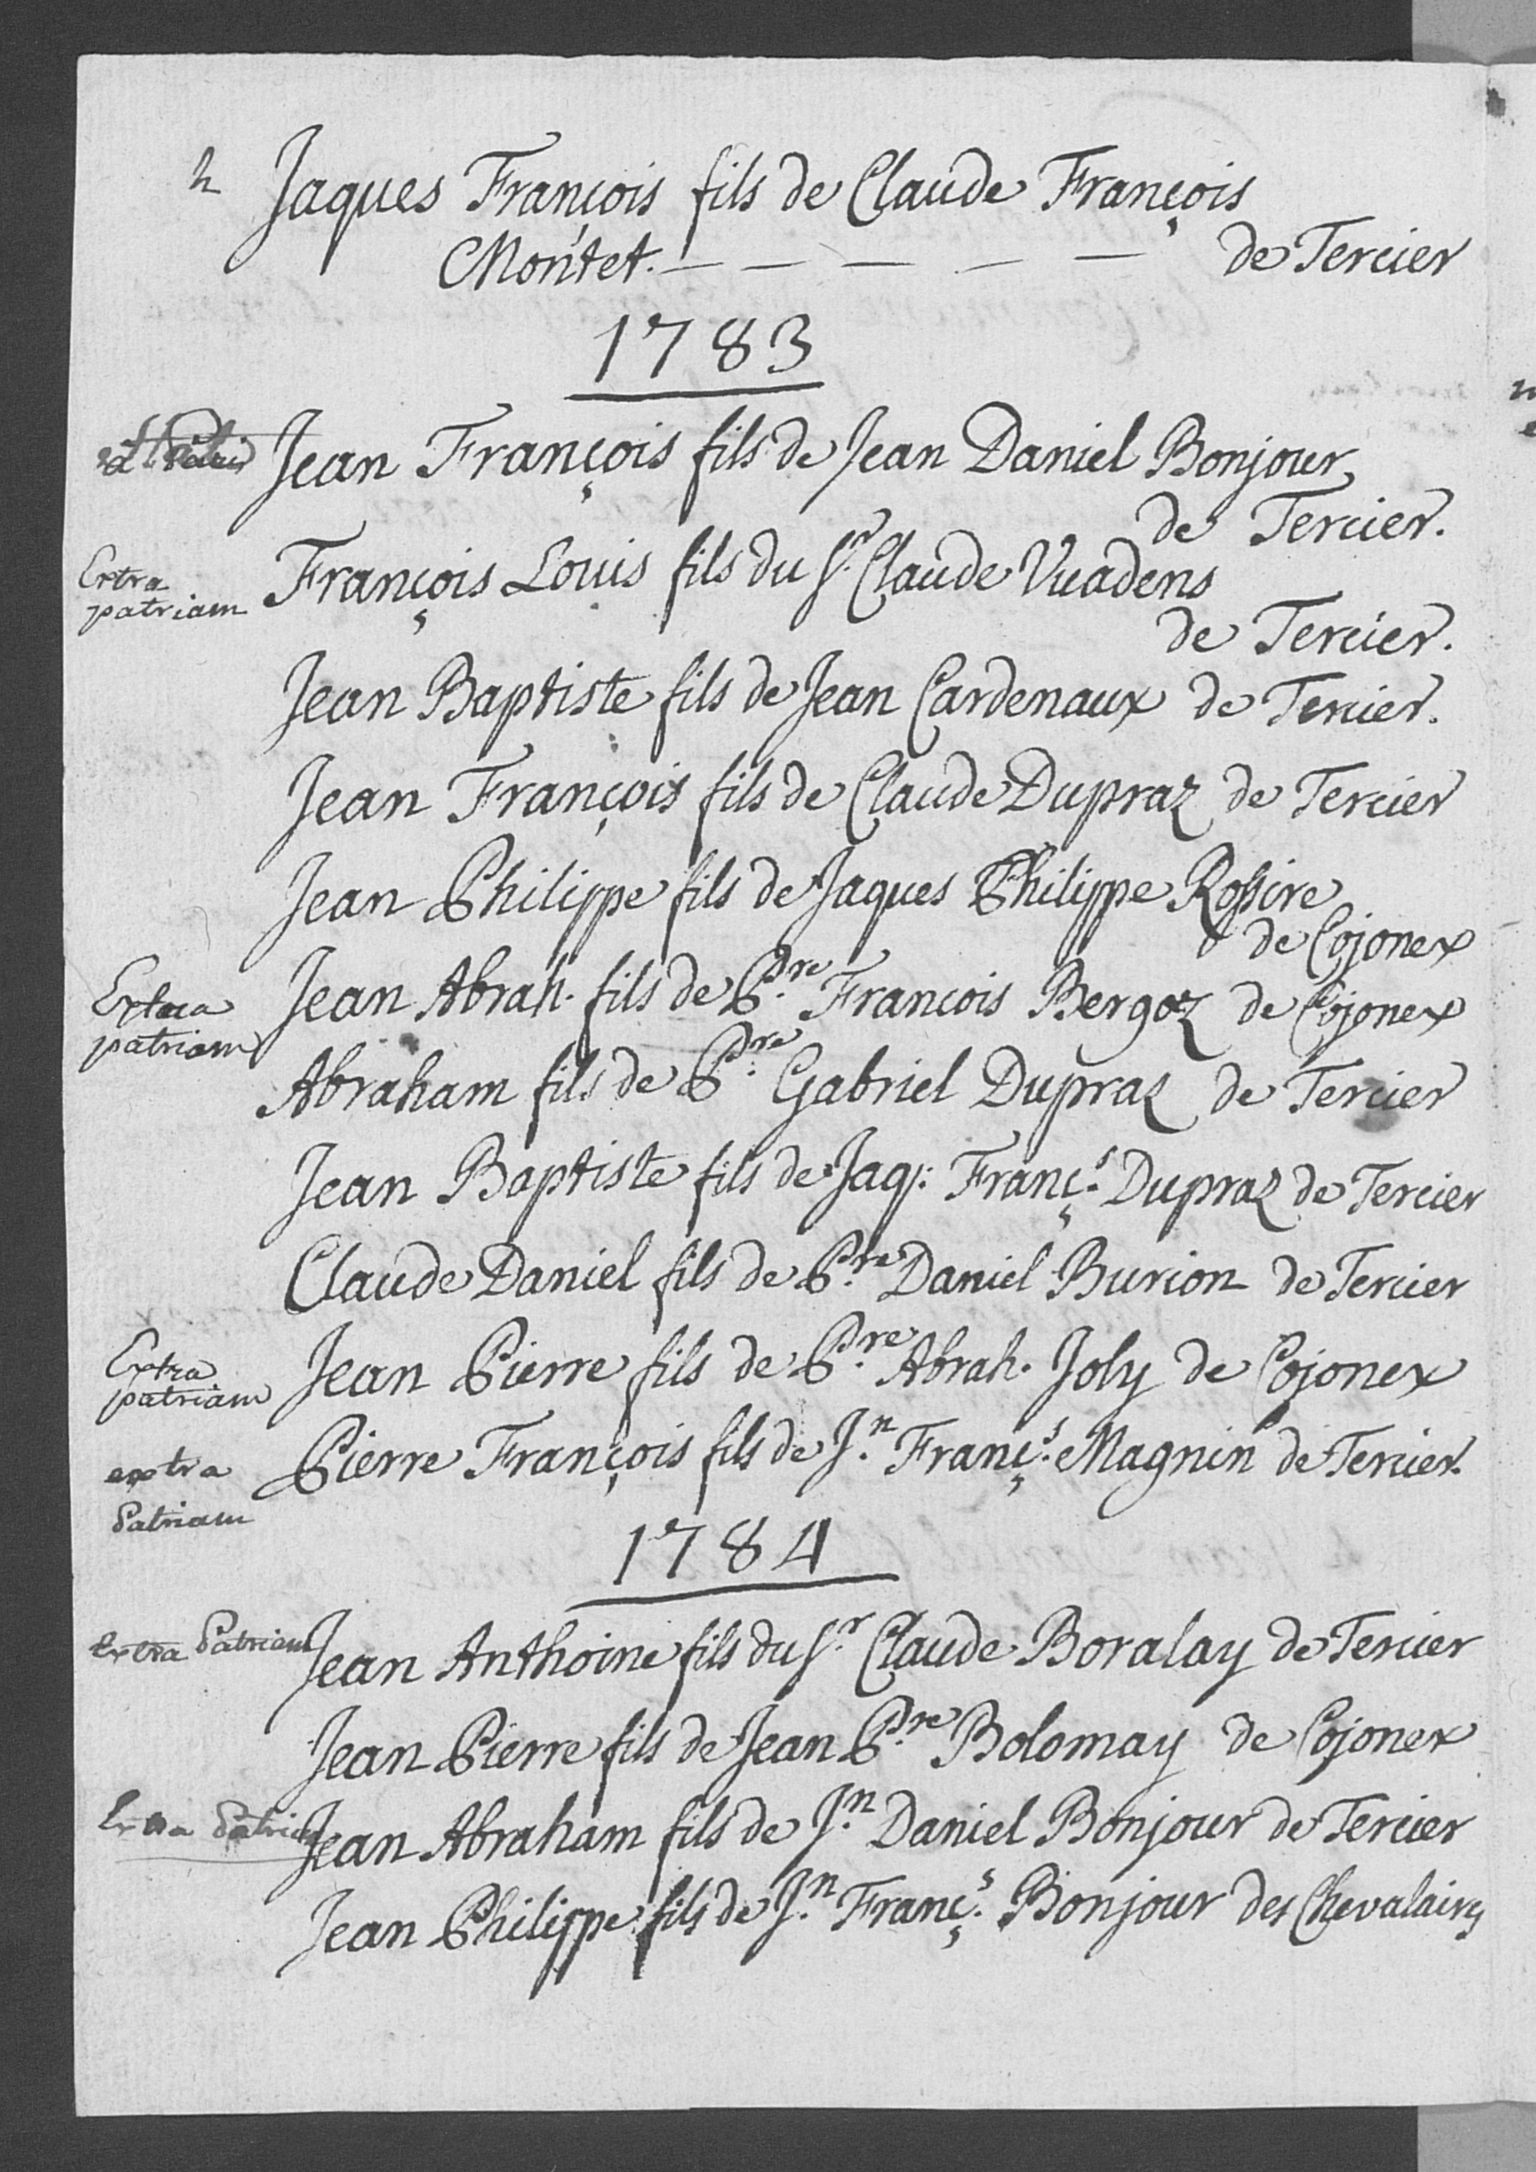 Jaques François fils de Claude François
Montet. — — — — — de Tercier
1783
Jean François fils de Jean Daniel Bonjour
de Tercier.
Extra
patriam
François Louis fils du Sr. Claude Vuadens
de Tercier.
Jean Baptiste fils de Jean Cardenaux de Tercier.
Jean François fils de Claude Dupraz de Tercier
Jean Philippe fils de Jaques Philippe Rossire
de Cojonex
Extra
patriam
Jean Abrah. fils de Pre. Francois Bergoz de Cojonex
Abraham fils de Pre. Gabriel Dupraz de Tercier
Jean Baptiste fils de Jaq: Franç.s Dupraz de Tercier
Claude Daniel fils de Pre. Daniel Burion de Tercier
Extra
patriam
Jean Pierre fils de Pre. Abrah. Joly de Cojonex
extra
Patriam
Pierre François fils de Jn. Franç.s Magnin de Tercier.
1784
extra Patriam Jean Anthoine fils du Sr. Claude Boralay de Tercier
Jean Pierre fils de Jean Pre. Bolomay de Cojonex
Extra Patriam Jean Abraham fils de Jn. Daniel Bonjour de Tercier
Jean Philippe fils de Jn. Franç.s Bonjour des Chevalaires